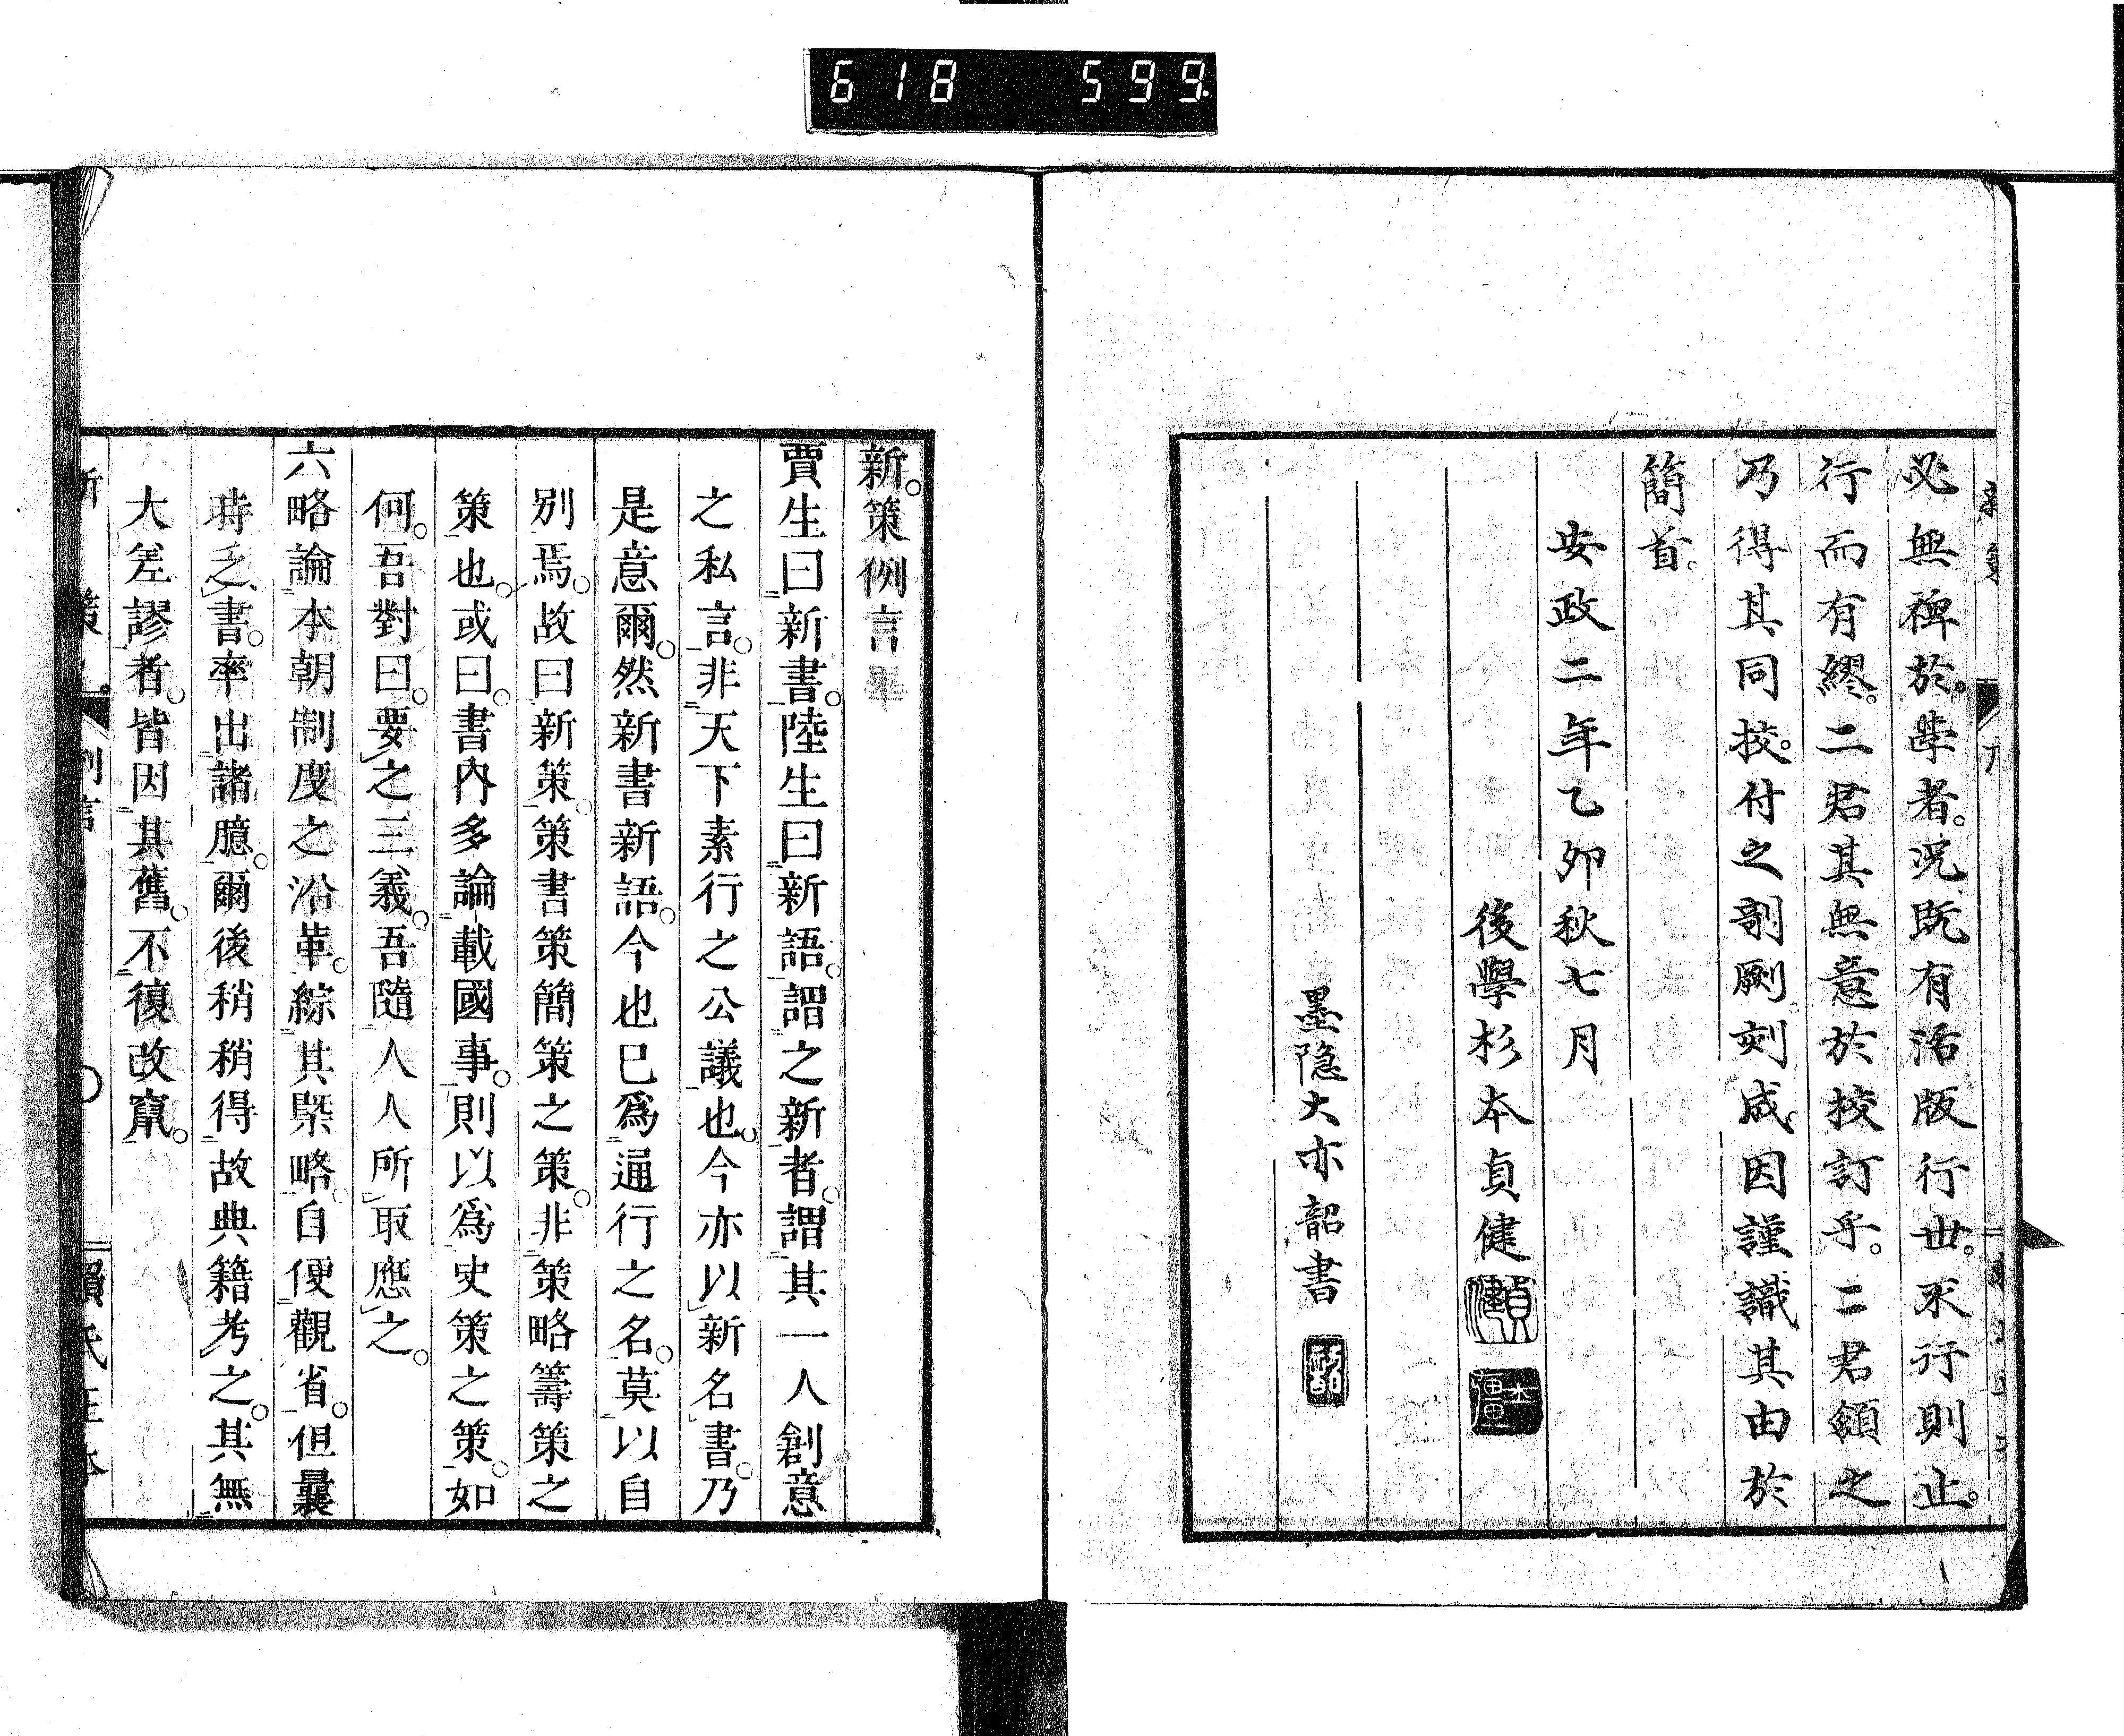 618 599
必無裨於學者。況既有活版行世。不行則止。
行而有繆。二君其無意於挍訂乎。二君頷之
乃得其同挍。付之剞劂刻成。因謹識其由於
簡首。
安政二年乙卯秋七月
後學杉本貞健
墨隱大亦韶書
新策例言
賈生曰新書。陸生曰新語。謂之新者。謂其一人創意
之私言。非天下素行之公議也。今亦以新名書。乃
是意爾。然新書新語。今也已爲通行之名。莫以自
別焉。故曰新策。策書策簡策之策。非策略籌策之
策也。或曰。書內多論載國事。則以爲史策之策。如
何。吾對曰。要之三義。吾隨人人所取應之。
六略論本朝制度之沿革。綜其槩略。自便觀省。但曩
時乏書。率出諸臆。爾後稍稍得故典籍考之。其無
大差謬者。皆因其舊。不復改竄。
新策
例言
賴氏正本